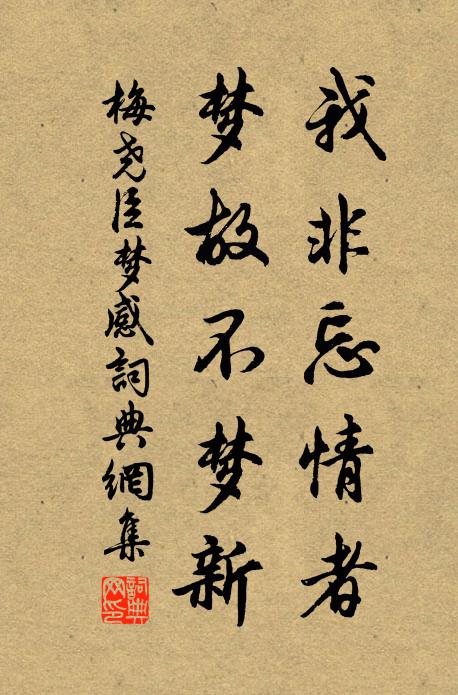 我非忘情者
梦故不梦新
梅尧臣梦感詞典網集
詞典网印